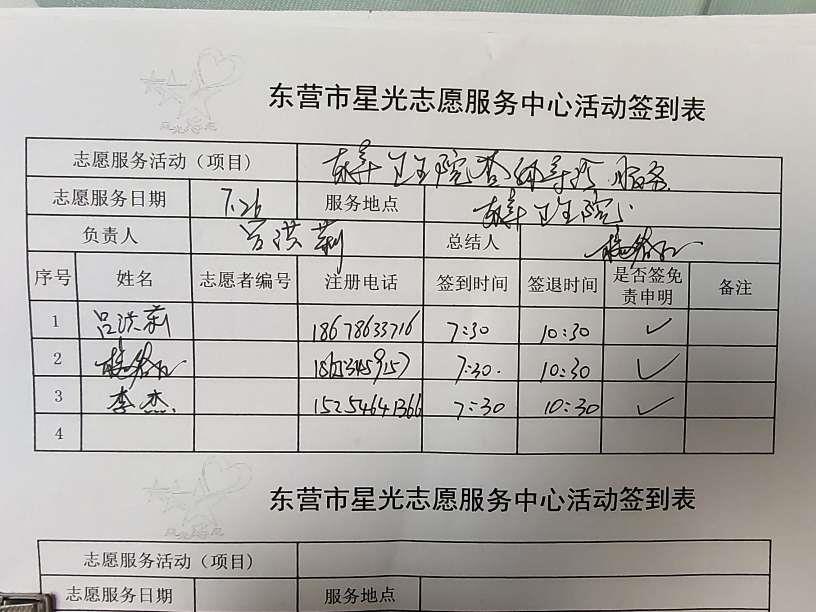 东营市星光志愿服务中心活动签到表
志愿服务活动（项目） 卫生院 服务
志愿服务日期 7.26 服务地点 卫生院
负责人 吕洪莉 总结人
序号 姓名 志愿者编号 注册电话 签到时间 签退时间 是否签免责申明 备注
1 吕洪莉 18678633716 7:30 10:30 ✓
2 7:30. 10:30 ✓
3 李杰. 15254641366 7:30 10:30 ✓
4
东营市星光志愿服务中心活动签到表
志愿服务活动（项目）
志愿服务日期 服务地点